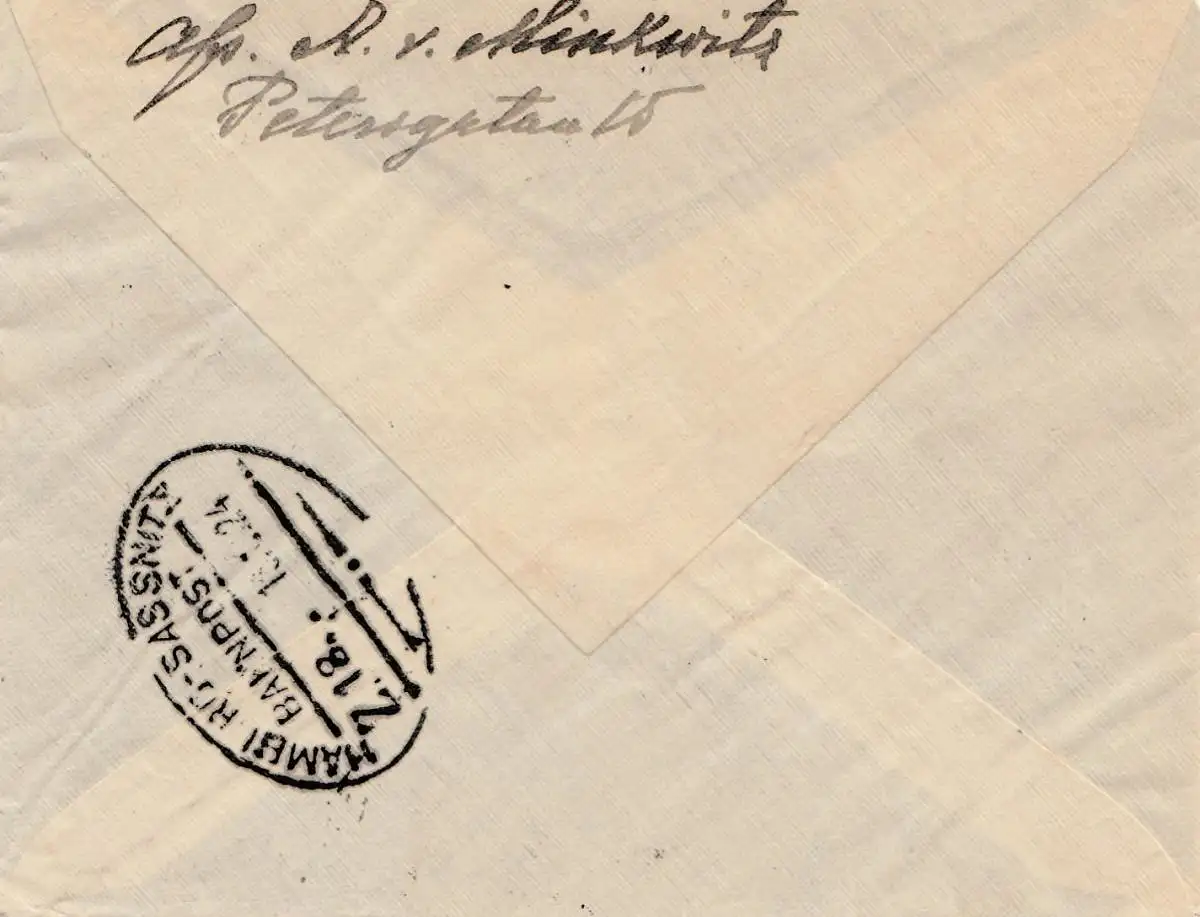 Afs. A. v. Minkwitz
Petersgatan 15
HAMB RG-SASSNITZ
BAHNPOST
Z.18
24